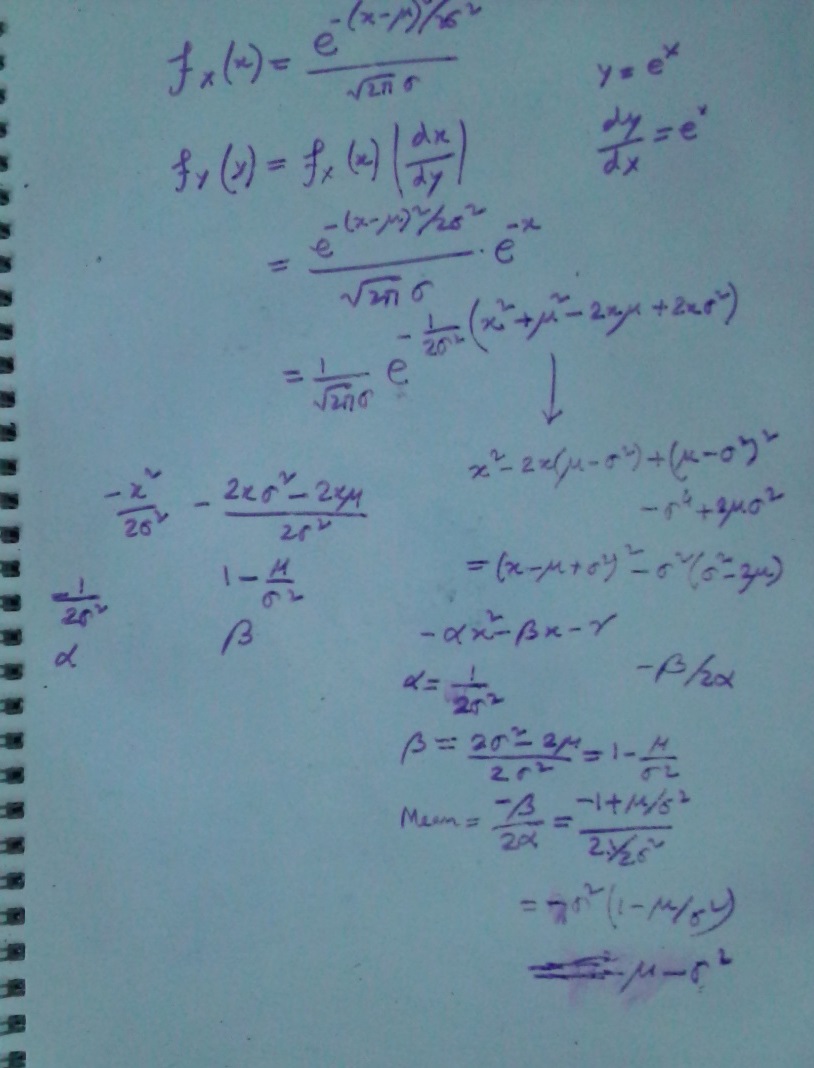 f_X(x) = e^{-(x-μ)²/2σ²} / √2π σ
y = e^x
f_Y(y) = f_X(x) |dx/dy|
dy/dx = e^x
= e^{-(x-μ)²/2σ²} / √2π σ · e^{-x}
= 1/√2πσ e^{-1/2σ² (x²+μ²-2xμ+2xσ²)}
↓
x²-2x(μ-σ²)+(μ-σ²)²
-σ⁴+2μσ²
-x²/2σ² - 2xσ²-2xμ/2σ²
=(x-μ+σ²)²-σ²(σ²-2μ)
-1/2σ² 1-μ/σ²
α β
-αx²-βx-γ
α=1/2σ² -β/2α
β = 2σ²-2μ/2σ² = 1-μ/σ²
Mean = -β/2α = -1+μ/σ²/2·1/2σ²
= -σ²(1-μ/σ²)
μ-σ²